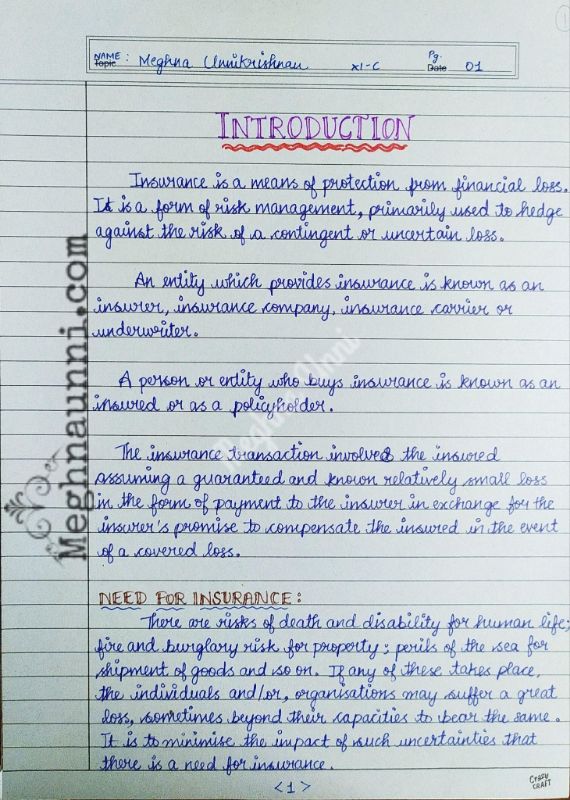 1
NAME : Meghna Unnikrishnan XI-C Pg. 01
Topic Date
INTRODUCTION
Insurance is a means of protection from financial loss.
It is a form of risk management, primarily used to hedge
against the risk of a contingent or uncertain loss.
An entity which provides insurance is known as an
insurer, insurance company, insurance carrier or
underwriter.
A person or entity who buys insurance is known as an
insured or as a policyholder.
The insurance transaction involves the insured
assuming a guaranteed and known relatively small loss
in the form of payment to the insurer in exchange for the
insurer's promise to compensate the insured in the event
of a covered loss.
NEED FOR INSURANCE:
There are risks of death and disability for human life;
fire and burglary risk for property; perils of the sea for
shipment of goods and so on. If any of these takes place,
the individuals and/or, organisations may suffer a great
loss, sometimes beyond their capacities to bear the same.
It is to minimise the impact of such uncertainties that
there is a need for insurance.
<1>
CRAZY
CRAFT
Meghnaunni.com
Meghna Unni